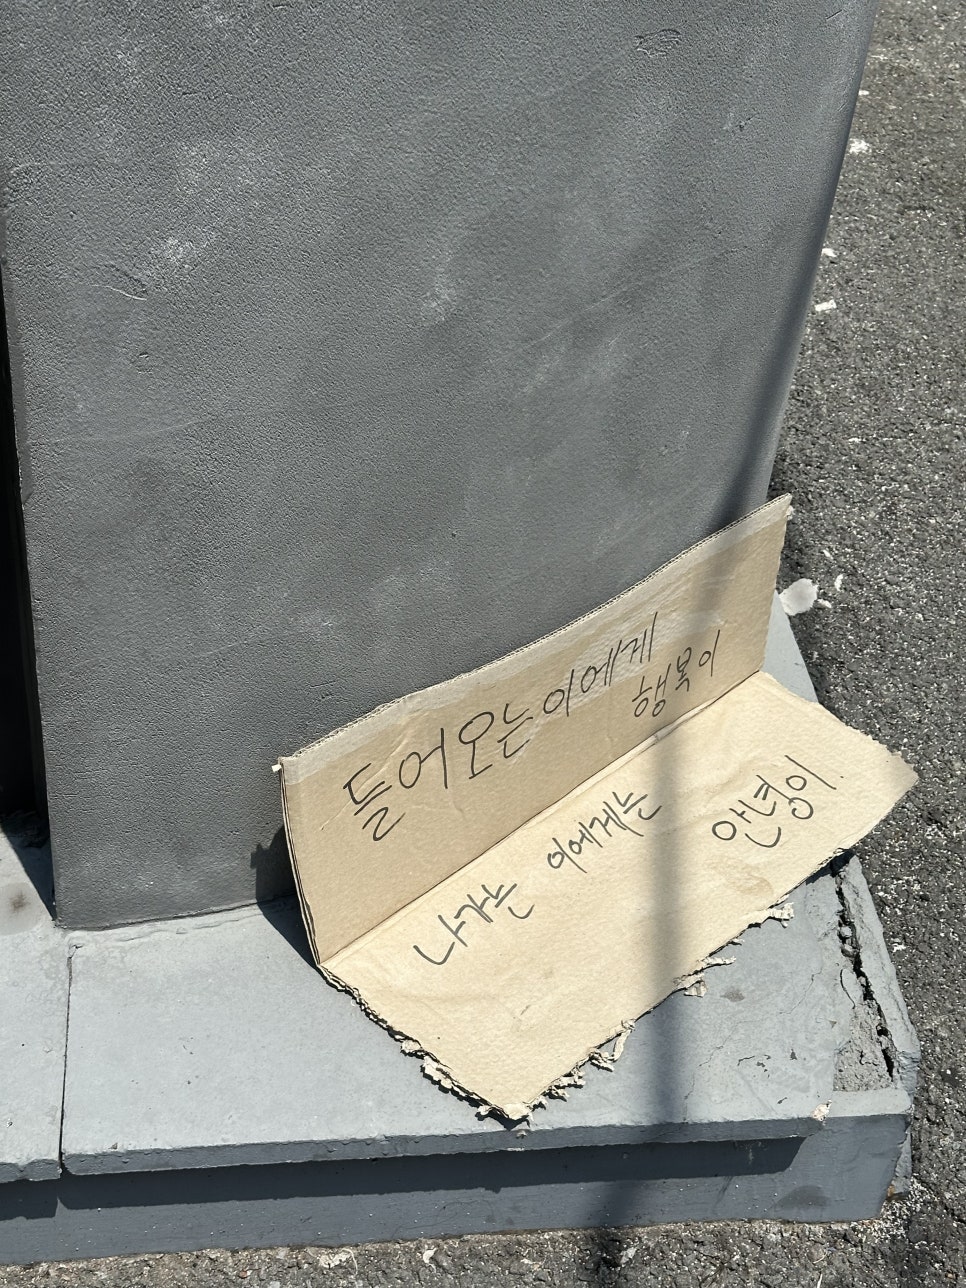 들어오는이에게
행복이
나가는 이에게는
안녕이